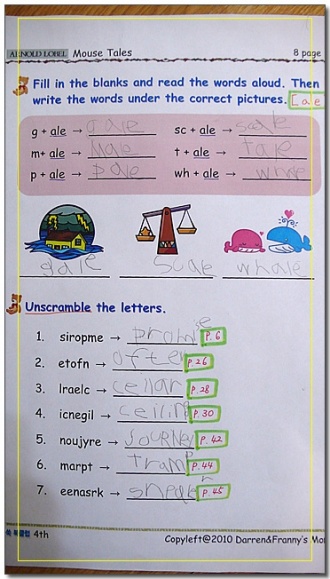 ARNOLD LOBEL Mouse Tales 8 page
Fill in the blanks and read the words aloud. Then
write the words under the correct pictures. [ale
g + ale → gale sc + ale → scale
m+ ale → male t + ale → tale
p + ale → pale wh + ale → whale
gale scale whale
Unscramble the letters.
1. siropme → promise P.6
2. etofn → often P.26
3. lraelc → cellar P.28
4. icnegil → ceiling P.30
5. noujyre → JOURNEY P.42
6. marpt → tramp P.44
7. eenasrk → sneaker P.45
4th Copyleft@2010 Darren&Franny's Mo